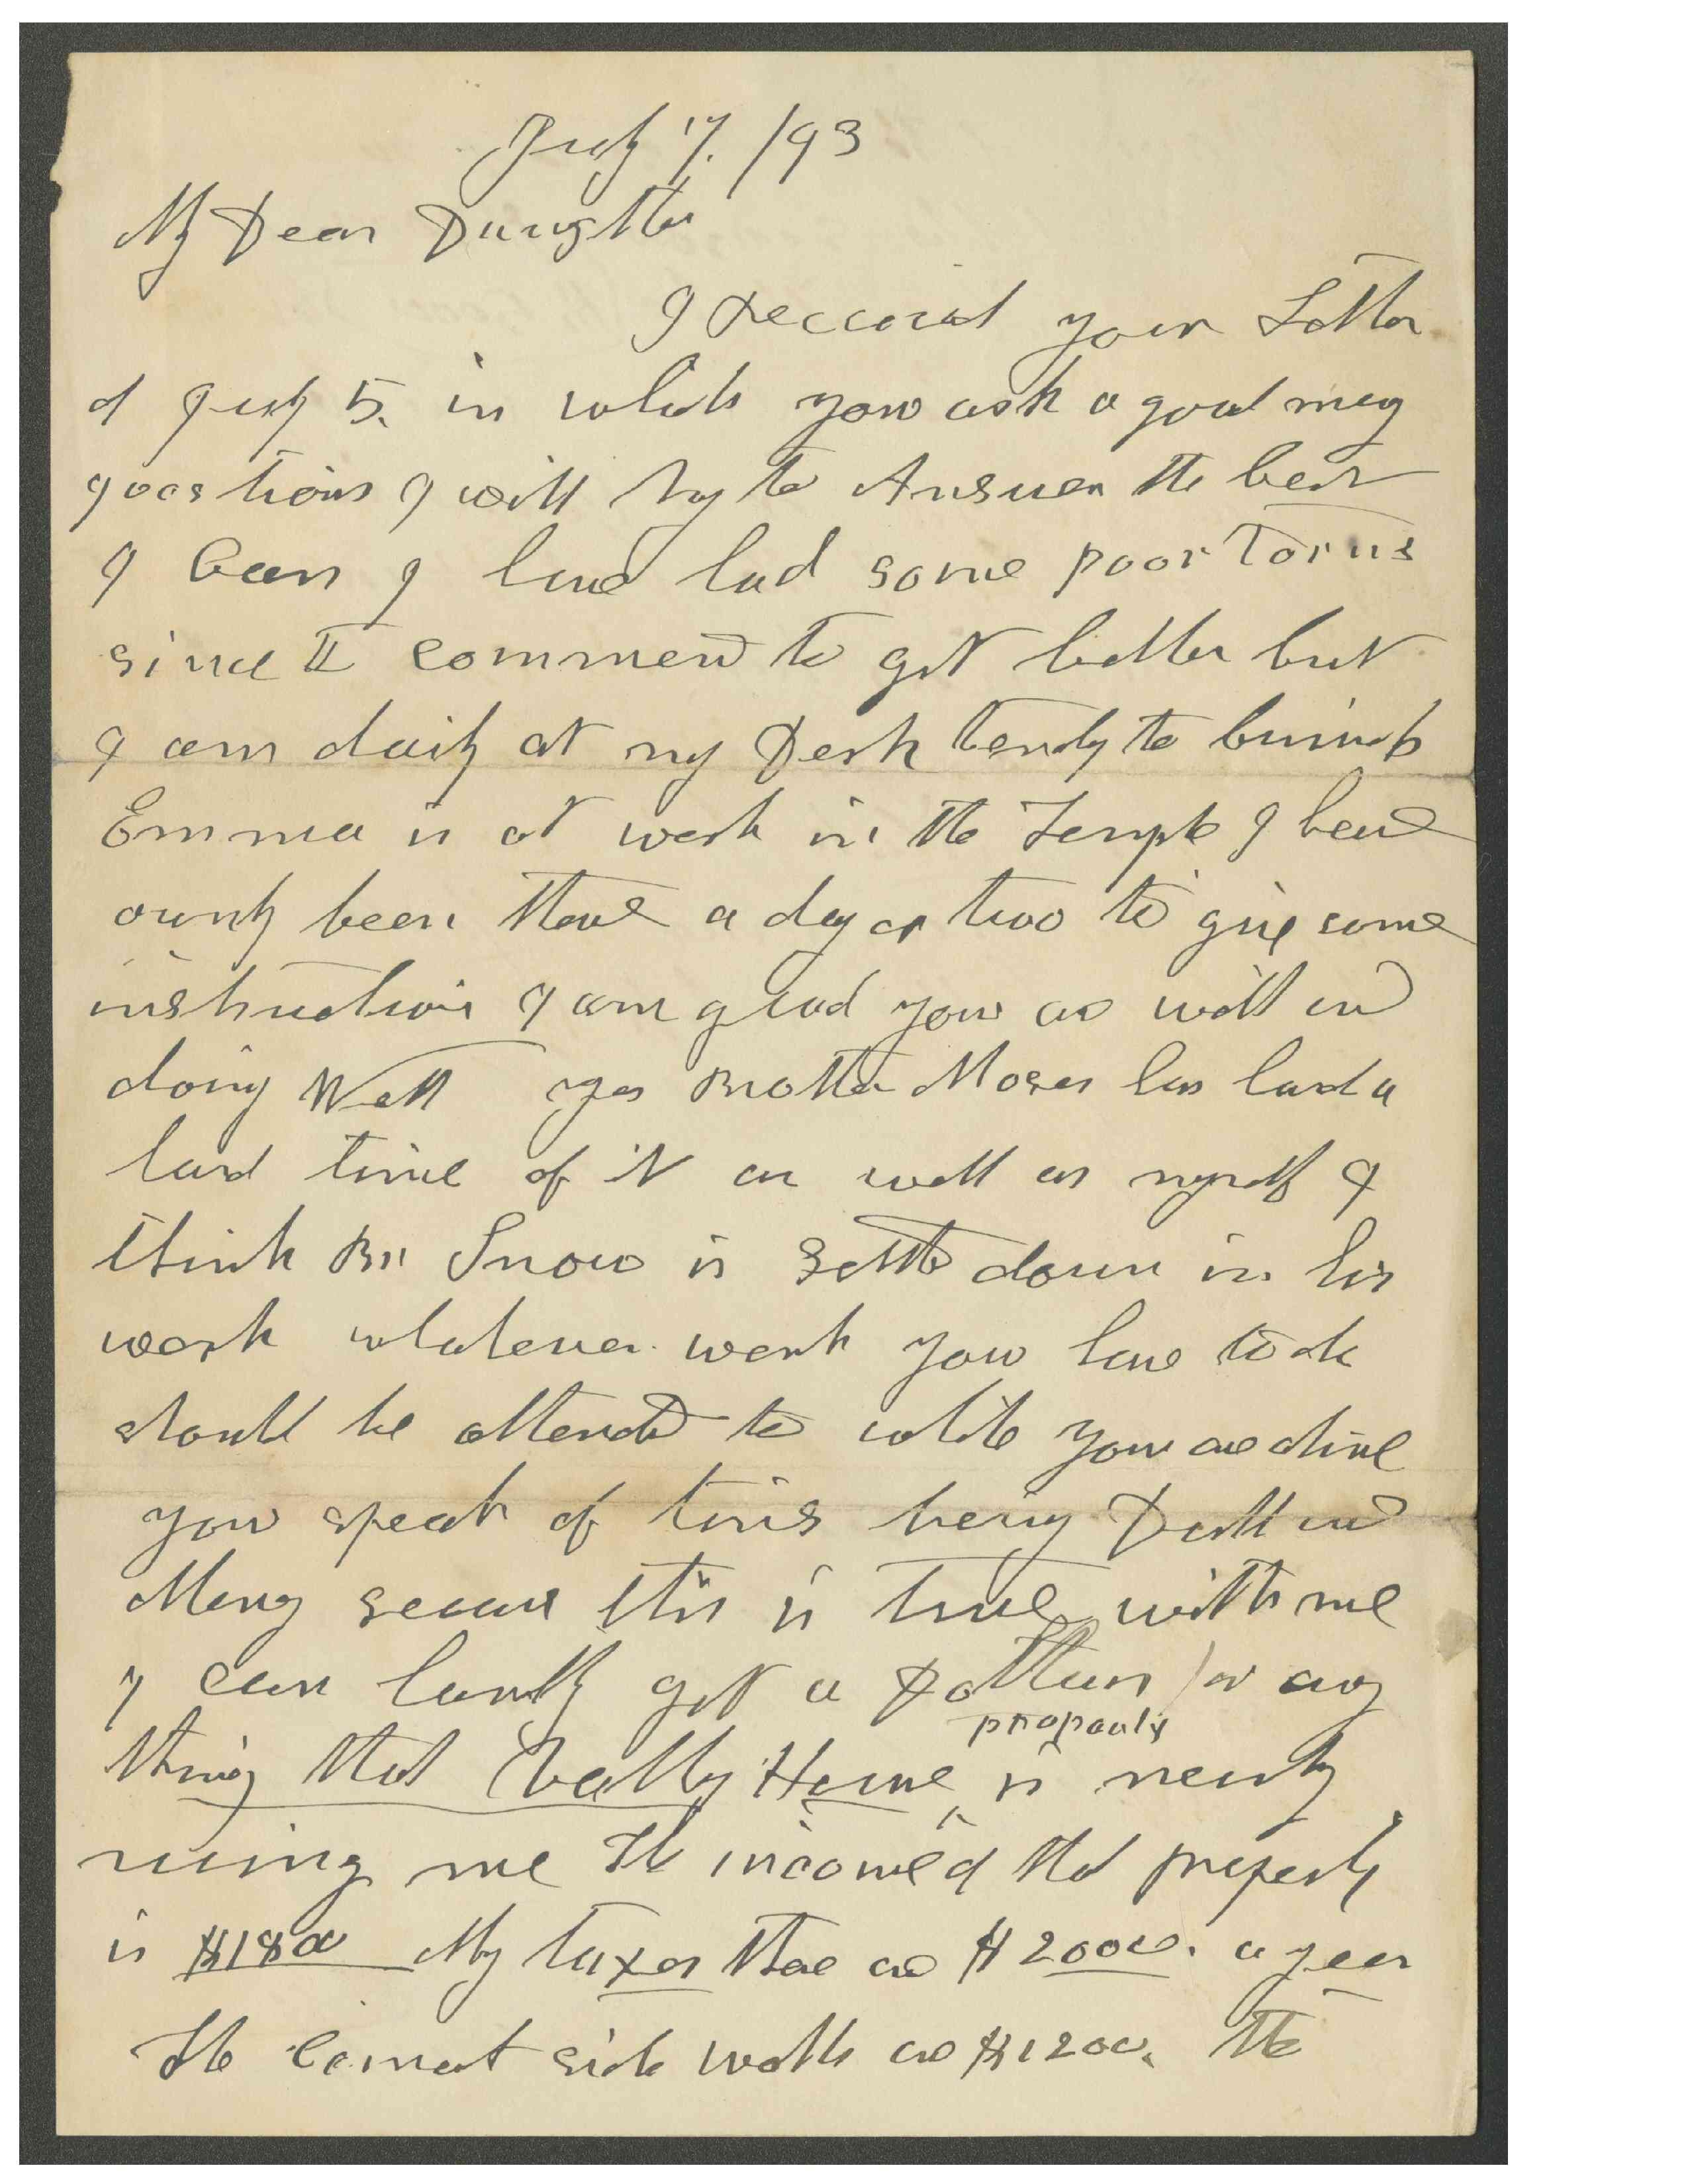 July 7. /93
My Dear Daughter
I Received your Letter
of July 5. in which you ask a good many
questions I will try to Answer the best
I Can I have had some poor Torns
since I commencd to get better but
I am daily at my Desk tending to business
Emma is at work in the Temple I have
ownly been there a day or two to give some
instruction I am glad you are well and
doing Well yes Brother Moses has had a
hard time of it as well as myself I
think Br Snow is settled down in his
work whatever work you have to do
should be attended to while you are alive
you speak of times being Dull and
Money scarce this is true with me
I can hardly get a Dollar for any
thing that Vally Home propauty is nearly
ruing me The income of that property
is $1800 My taxes there are $2000. a year
The Cement side walks are $1200. the